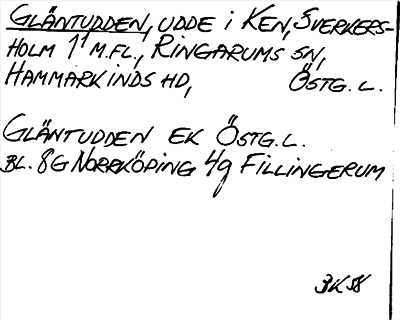 GLÄNTUDDEN, UDDE i KEN, SVERKERS-
HOLM 1¹ M.FL., RINGARUMS SN,
HAMMARKINDS HD, ÖSTG. L.
GLÄNTUDDEN EK ÖSTG. L.
BL. 8G NORRKÖPING 4g FILLINGERUM